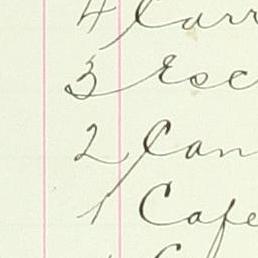 4 Carr
3 Esc
2 Can
1 Cafe